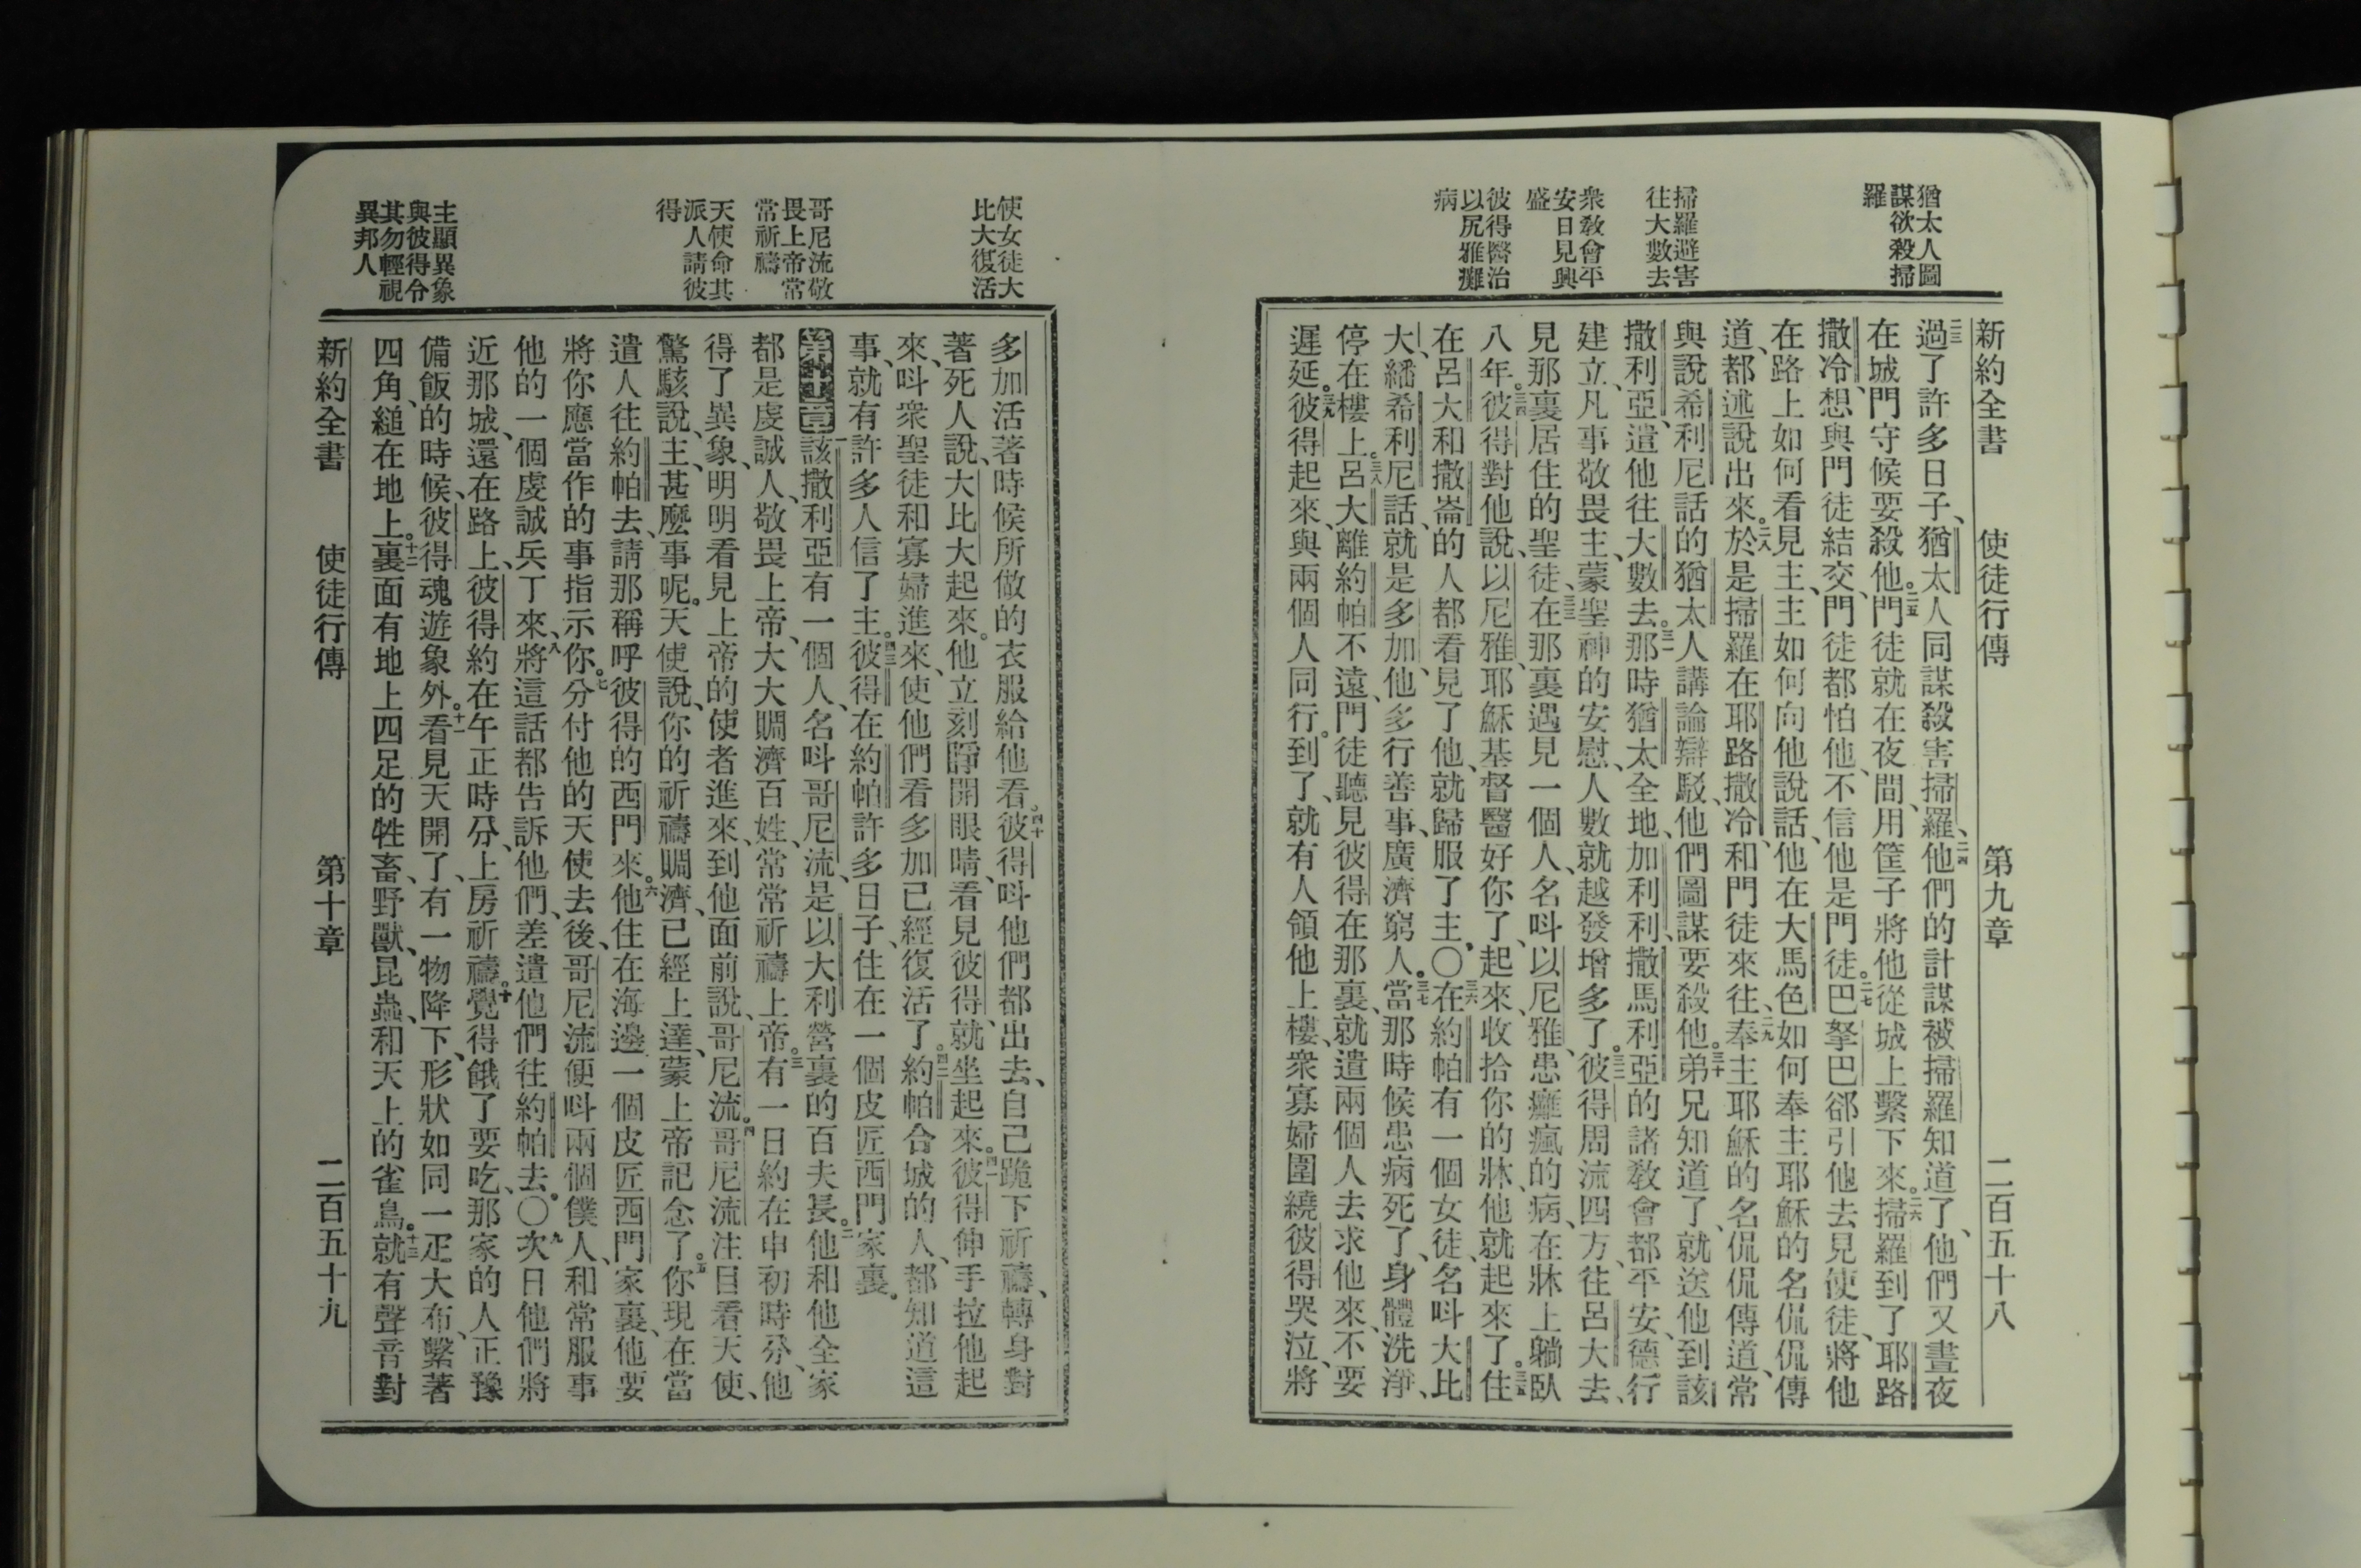 猶太人圖
謀欲殺掃
羅
掃羅避害
往大數去
衆敎會平
安日見興
盛
彼得醫治
以尻雅癱
病
新約全書 使徒行傳 第九章 二百五十八
二三過了許多日子、猶太人同謀殺害掃羅、二四他們的計謀被掃羅知道了、他們又晝夜
在城門守候要殺他。二五門徒就在夜間、用筐子將他從城上繫下來。二六掃羅到了耶路
撒冷、想與門徒結交、門徒都怕他、不信他是門徒。二七巴拏巴郤引他去見使徒、將他
在路上如何看見主、主如何向他說話、他在大馬色如何奉主耶穌的名侃侃傳
道、都述說出來。二八於是掃羅在耶路撒冷、和門徒來往、二九奉主耶穌的名侃侃傳道、常
與說希利尼話的猶太人講論辯駁、他們圖謀要殺他。三十弟兄知道了、就送他到該
撒利亞、遣他往大數去。三一那時猶太全地、加利利、撒馬利亞的諸敎會都平安、德行
建立、凡事敬畏主、蒙聖神的安慰、人數就越發增多了。三二彼得周流四方、往呂大去、
見那裏居住的聖徒、三三在那裏遇見一個人、名呌以尼雅、患癱瘋的病、在牀上躺臥
八年。三四彼得對他說、以尼雅、耶穌基督醫好你了、起來、收拾你的牀、他就起來了。三五住
在呂大和撒崙的人都看見了他、就歸服了主。〇三六在約帕有一個女徒、名呌大比
大、繙希利尼話、就是多加、他多行善事、廣濟窮人。三七當那時候患病死了、身體洗淨、
停在樓上。三八呂大離約帕不遠、門徒聽見彼得在那裏、就遣兩個人去求他來、不要
遲延。三九彼得起來、與兩個人同行。到了、就有人領他上樓、衆寡婦圍繞彼得哭泣、將
使女徒大
比大復活
哥尼流敬
畏上帝常
常祈禱
天使命其
派人請彼
得
主顯異象
與彼得令
其勿輕視
異邦人
多加活著時候所做的衣服給他看。四十彼得呌他們都出去、自己跪下祈禱、轉身對
著死人說、大比大起來。他立刻睜開眼睛、看見彼得、就坐起來。四一彼得伸手拉他起
來、呌衆聖徒和寡婦進來、使他們看多加已經復活了。四二約帕合城的人、都知道這
事、就有許多人信了主。四三彼得在約帕許多日子、住在一個皮匠西門家裏。
第十章 一該撒利亞有一個人、名呌哥尼流、是以大利營裏的百夫長。二他和他全家
都是虔誠人、敬畏上帝、大大賙濟百姓、常常祈禱上帝。三有一日約在申初時分、他
得了異象、明明看見上帝的使者進來、到他面前說、哥尼流。四哥尼流注目看天使、
驚駭說、主、甚麼事呢。天使說、你的祈禱賙濟、已經上達、蒙上帝記念了。五你現在當
遣人往約帕去、請那稱呼彼得的西門來。六他住在海邊一個皮匠西門家裏、他要
將你應當作的事指示你。七分付他的天使去後、哥尼流便呌兩個僕人、和常服事
他的一個虔誠兵丁來、八將這話都告訴他們、差遣他們往約帕去。〇九次日他們將
近那城、還在路上、彼得約在午正時分、上房祈禱。十覺得餓了要吃、那家的人、正豫
備飯的時候、彼得魂遊象外。十一看見天開了、有一物降下、形狀如同一疋大布、繫著
四角、縋在地上。十二裏面有地上四足的牲畜、野獸、昆蟲、和天上的雀鳥。十三就有聲音對
新約全書 使徒行傳 第十章 二百五十九